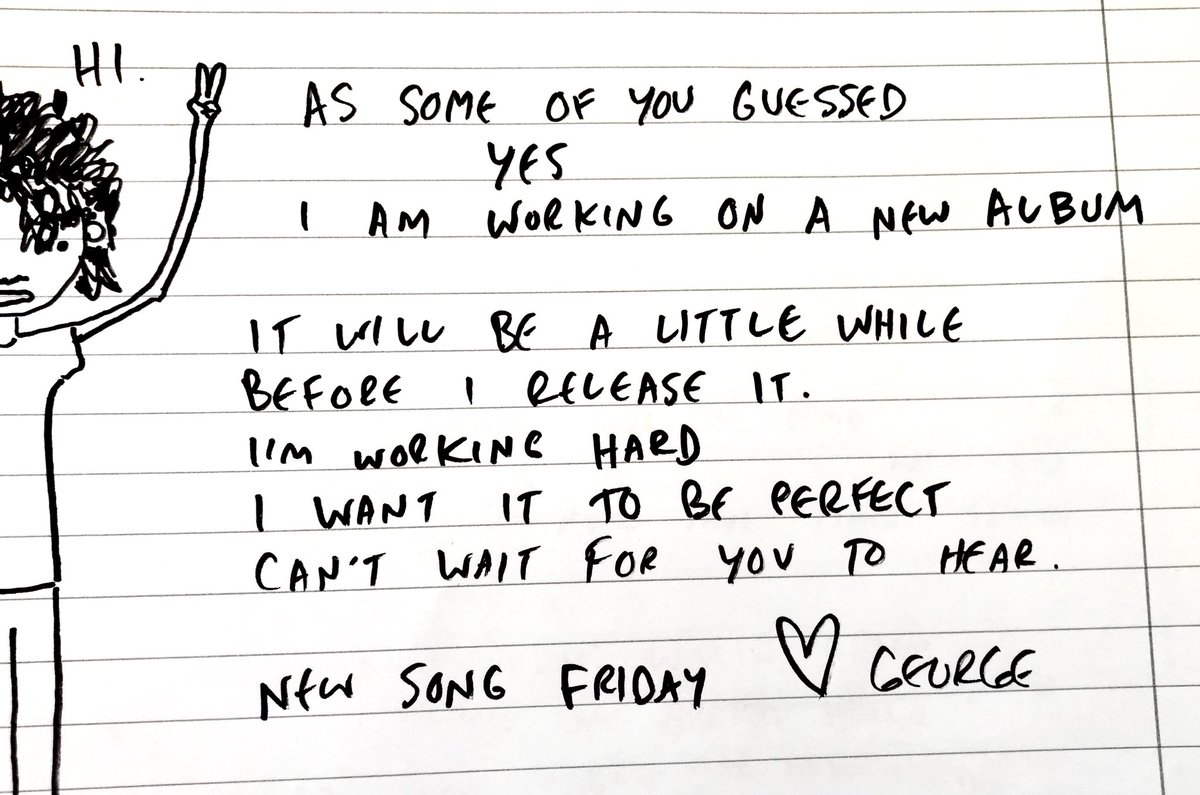 HI.
AS SOME OF YOU GUESSED
YES
I AM WORKING ON A NEW ALBUM
IT WILL BE A LITTLE WHILE
BEFORE I RELEASE IT.
I'M WORKING HARD
I WANT IT TO BE PERFECT
CAN'T WAIT FOR YOU TO HEAR.
NEW SONG FRIDAY ♡ GEORGE